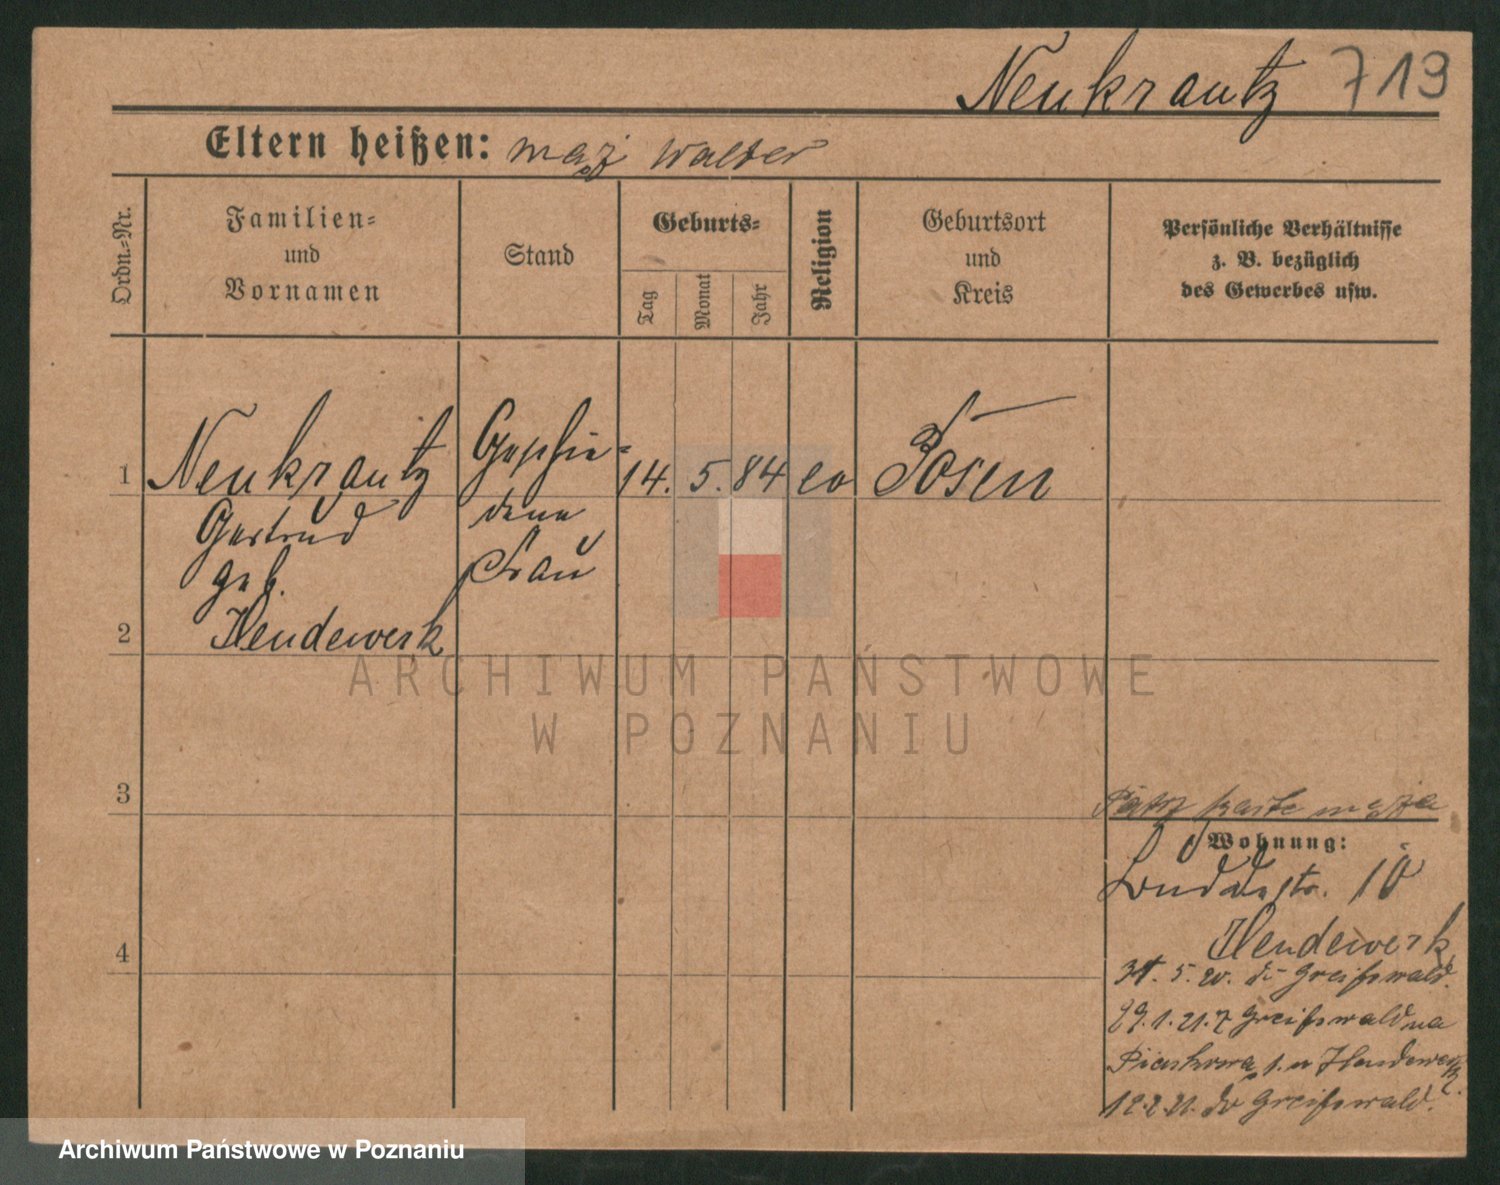 Neukrantz 719
Eltern heißen: mąż Walter
Ordn.-Nr.
Familien-
und
Vornamen
Stand
Geburts-
Tag
Monat
Jahr
Religion
Geburtsort
und
Kreis
Persönliche Verhältnisse
z. B. bezüglich
des Gewerbes usw.
1 Neukrantz Geschie- 14. 5. 84 ev Posen
Gertrud dene
geb. Frau
2 Hendewerk
3
4
Patrz karte męża
Wohnung:
str. 10
Hendewerk
31. 5. 20. do Greifswald.
29. 1. 21. z Greifswald na
Piaskowa 1. u Hendewerk
12. 2. 21. do Greifswald.
ARCHIWUM PAŃSTWOWE
W POZNANIU
Archiwum Państwowe w Poznaniu